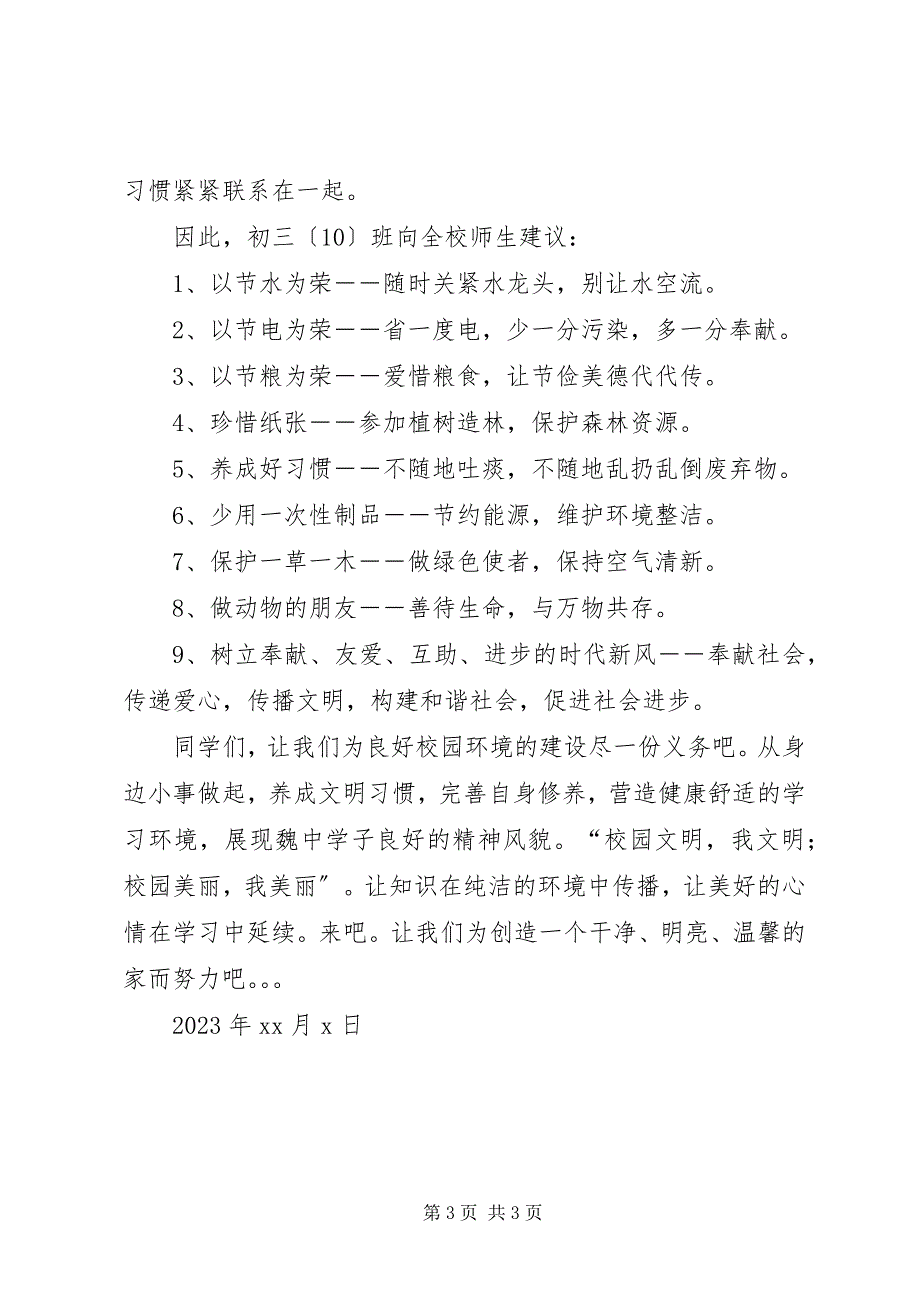 习惯紧紧联系在一起。
因此，初三〔10〕班向全校师生建议：
1、以节水为荣――随时关紧水龙头，别让水空流。
2、以节电为荣――省一度电，少一分污染，多一分奉献。
3、以节粮为荣――爱惜粮食，让节俭美德代代传。
4、珍惜纸张――参加植树造林，保护森林资源。
5、养成好习惯――不随地吐痰，不随地乱扔乱倒废弃物。
6、少用一次性制品――节约能源，维护环境整洁。
7、保护一草一木――做绿色使者，保持空气清新。
8、做动物的朋友――善待生命，与万物共存。
9、树立奉献、友爱、互助、进步的时代新风――奉献社会，
传递爱心，传播文明，构建和谐社会，促进社会进步。
同学们，让我们为良好校园环境的建设尽一份义务吧。从身
边小事做起，养成文明习惯，完善自身修养，营造健康舒适的学
习环境，展现魏中学子良好的精神风貌。“校园文明，我文明；
校园美丽，我美丽〞。让知识在纯洁的环境中传播，让美好的心
情在学习中延续。来吧。让我们为创造一个干净、明亮、温馨的
家而努力吧。。。
2023 年 xx 月 x 日
第 3 页 共 3 页